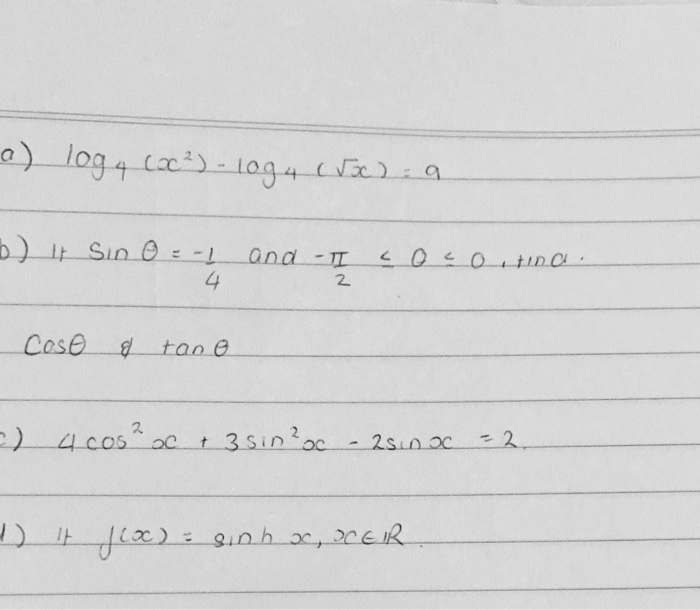 a) log₄(x²) - log₄(√x) = 9
b) If Sin θ = -1/4 and -π/2 ≤ θ ≤ 0, find.
Cosθ & tan θ
c) 4cos²x + 3sin²x - 2sinx = 2.
d) If f(x) = sinh x, x∈ℝ.